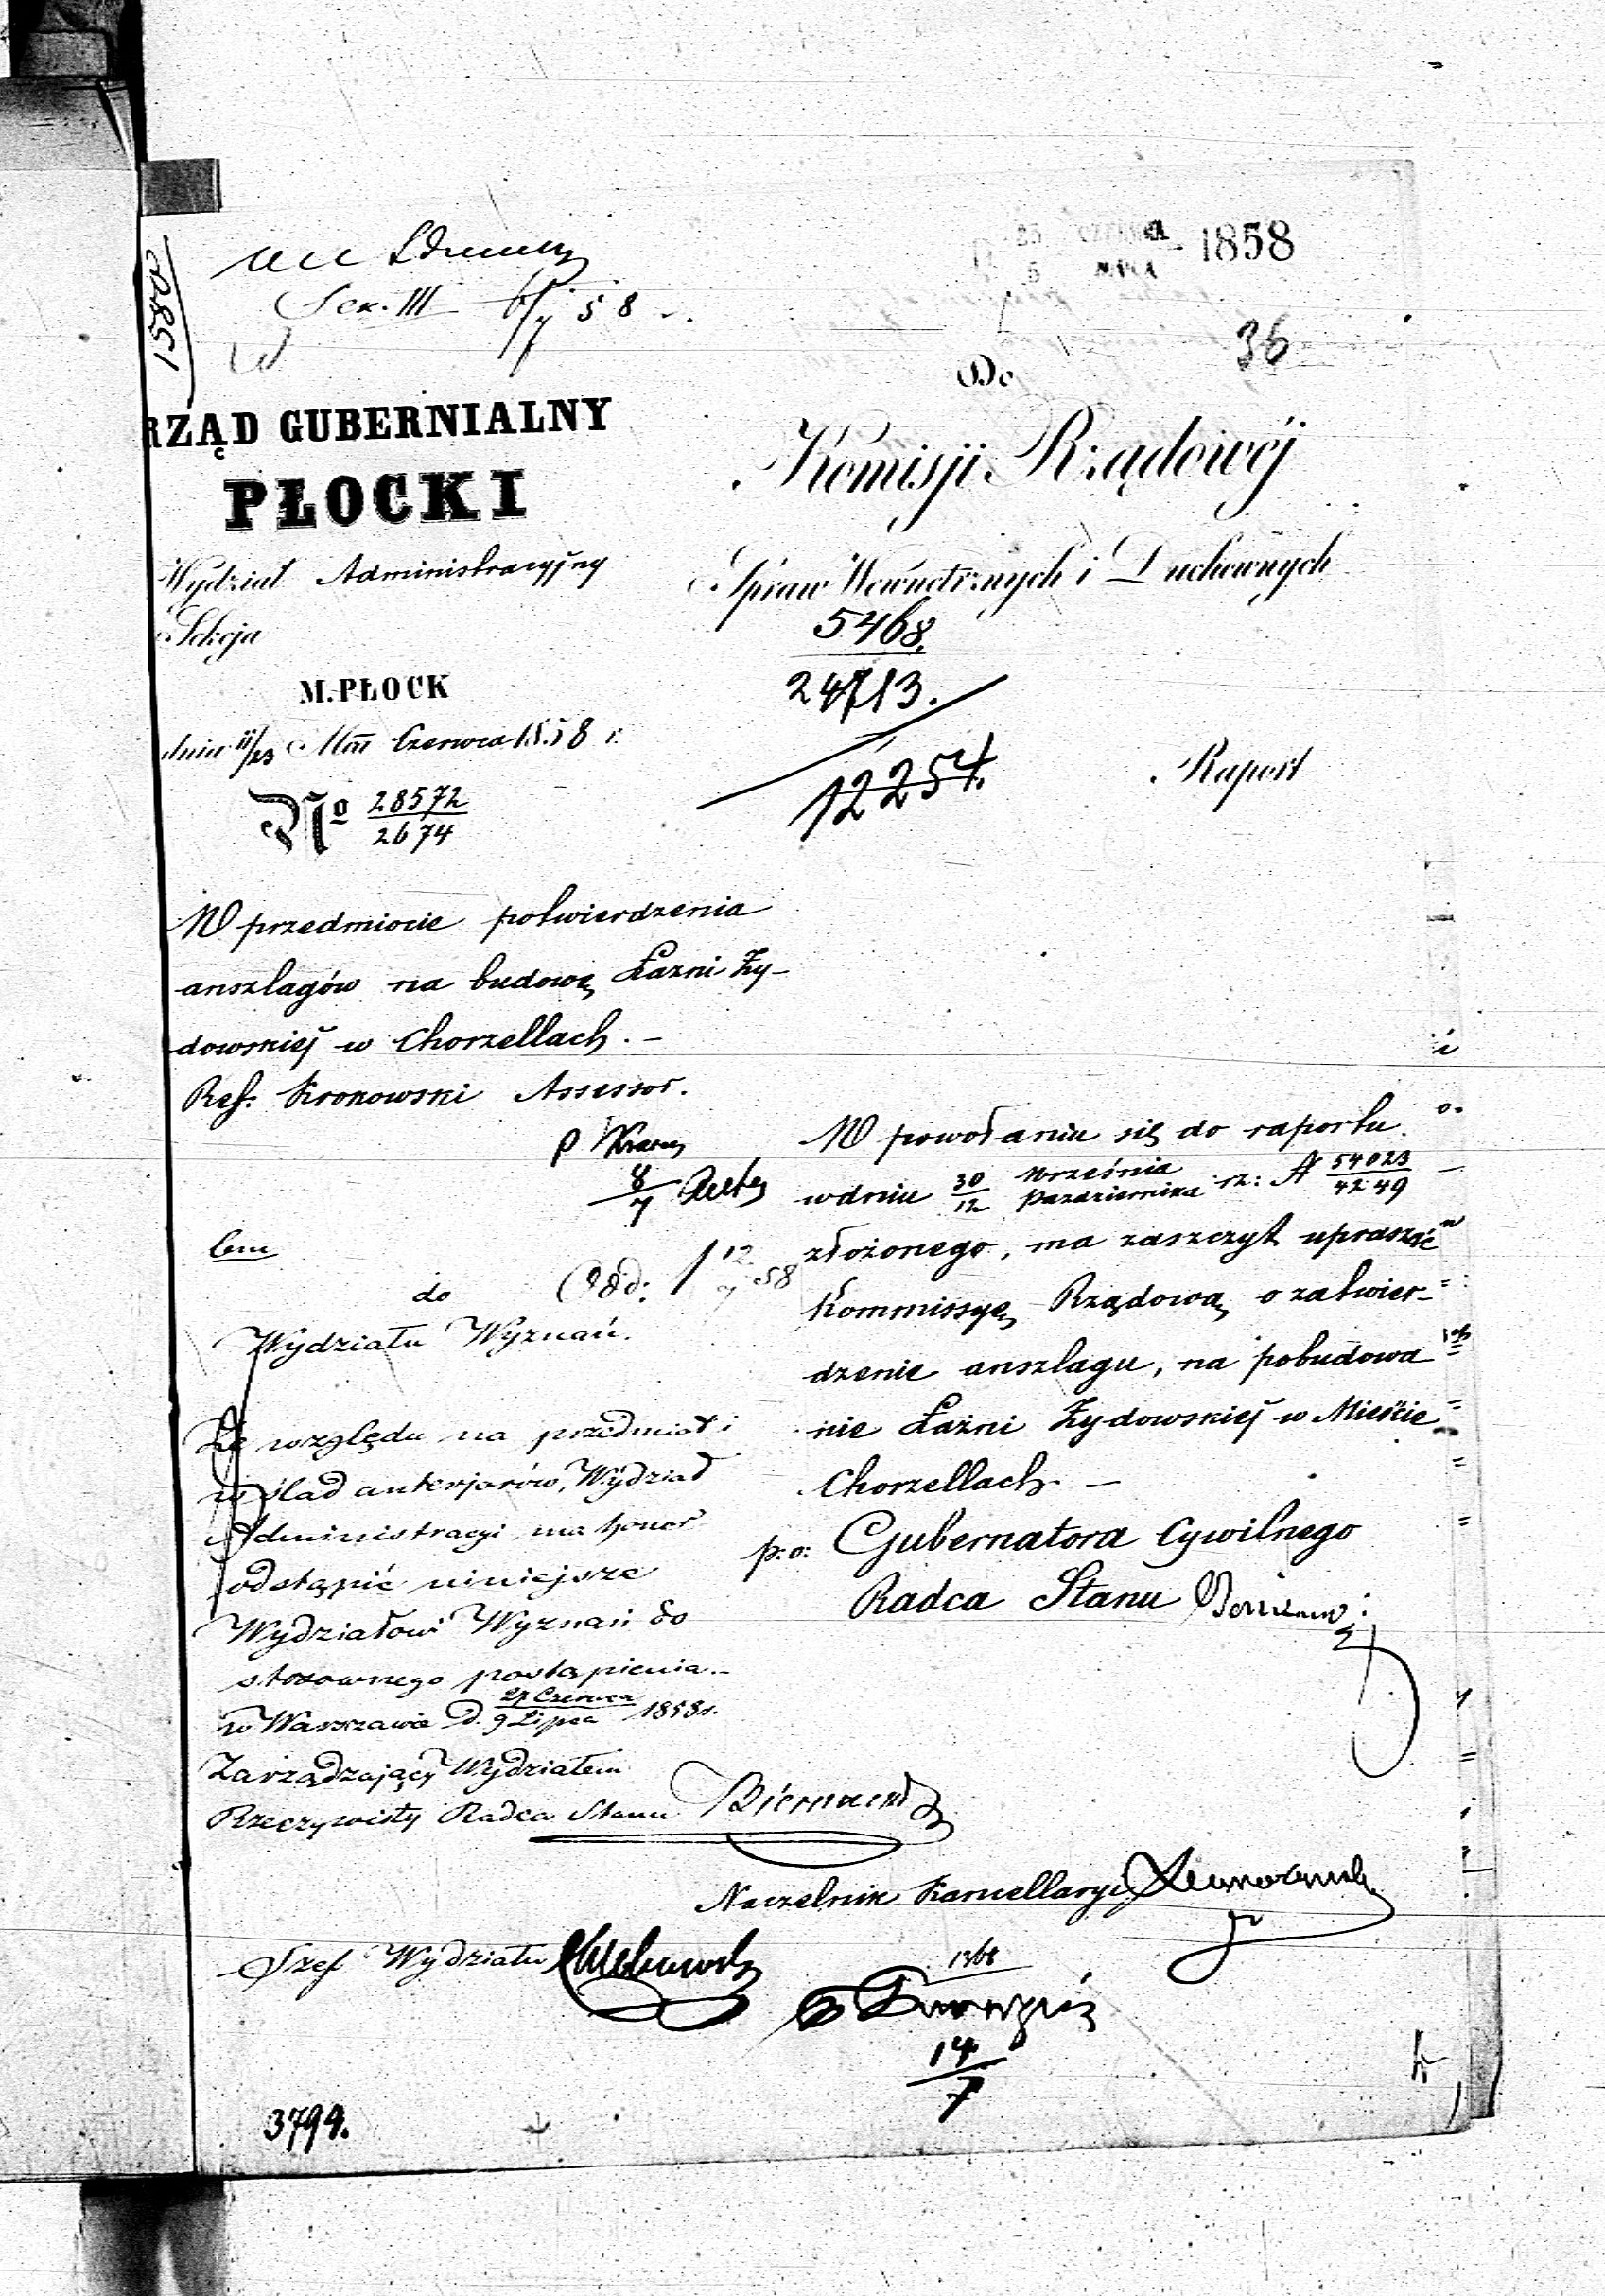 15800
Sek. III 6/7 58
25 CZERWCA 1858
5
36
RZĄD GUBERNIALNY
PŁOCKI
Wydział Administracyjny
Sekcja
M. PŁOCK
dnia 11/23 Mca Czerwca 1858 r.
No 28572
2674
Do
Komisji Rządowéj
Spraw Wewnetrznych i Duchownych
5468.
24713.
12254.
Raport
W przedmiocie potwierdzenia
anszlagów na budowę Łazni Ży-
dowskiej w Chorzellach. -
Ref: Kronowski Assessor.
8
7
W powołaniu się do raportu
w dniu 30/12 Września/Pazdziernika rz: N 54023/4249
złożonego, ma zaszczyt upraszać
Kommissyę Rządową o zatwier-
dzenie anszlagu, na pobudowa
nie Łaźni Żydowskiej w Mieście
Chorzellach. -
p: o: Gubernatora Cywilnego
Radca Stanu
do
Wydziału Wyznań.
Ze względu na przedmiot i
w ślad anterjorów, Wydział
Administracyi ma honor
odstąpić niniejsze
Wydziałowi Wyznań do
stosownego postąpienia. -
w Warszawie d. 27 Czerwca/9 Lipca 1858 r.
Zarządzający Wydziałem
Rzeczywisty Radca Stanu Biernacki
Naczelnik Kancellaryi
Szef Wydziału
1368
14
7
3799.